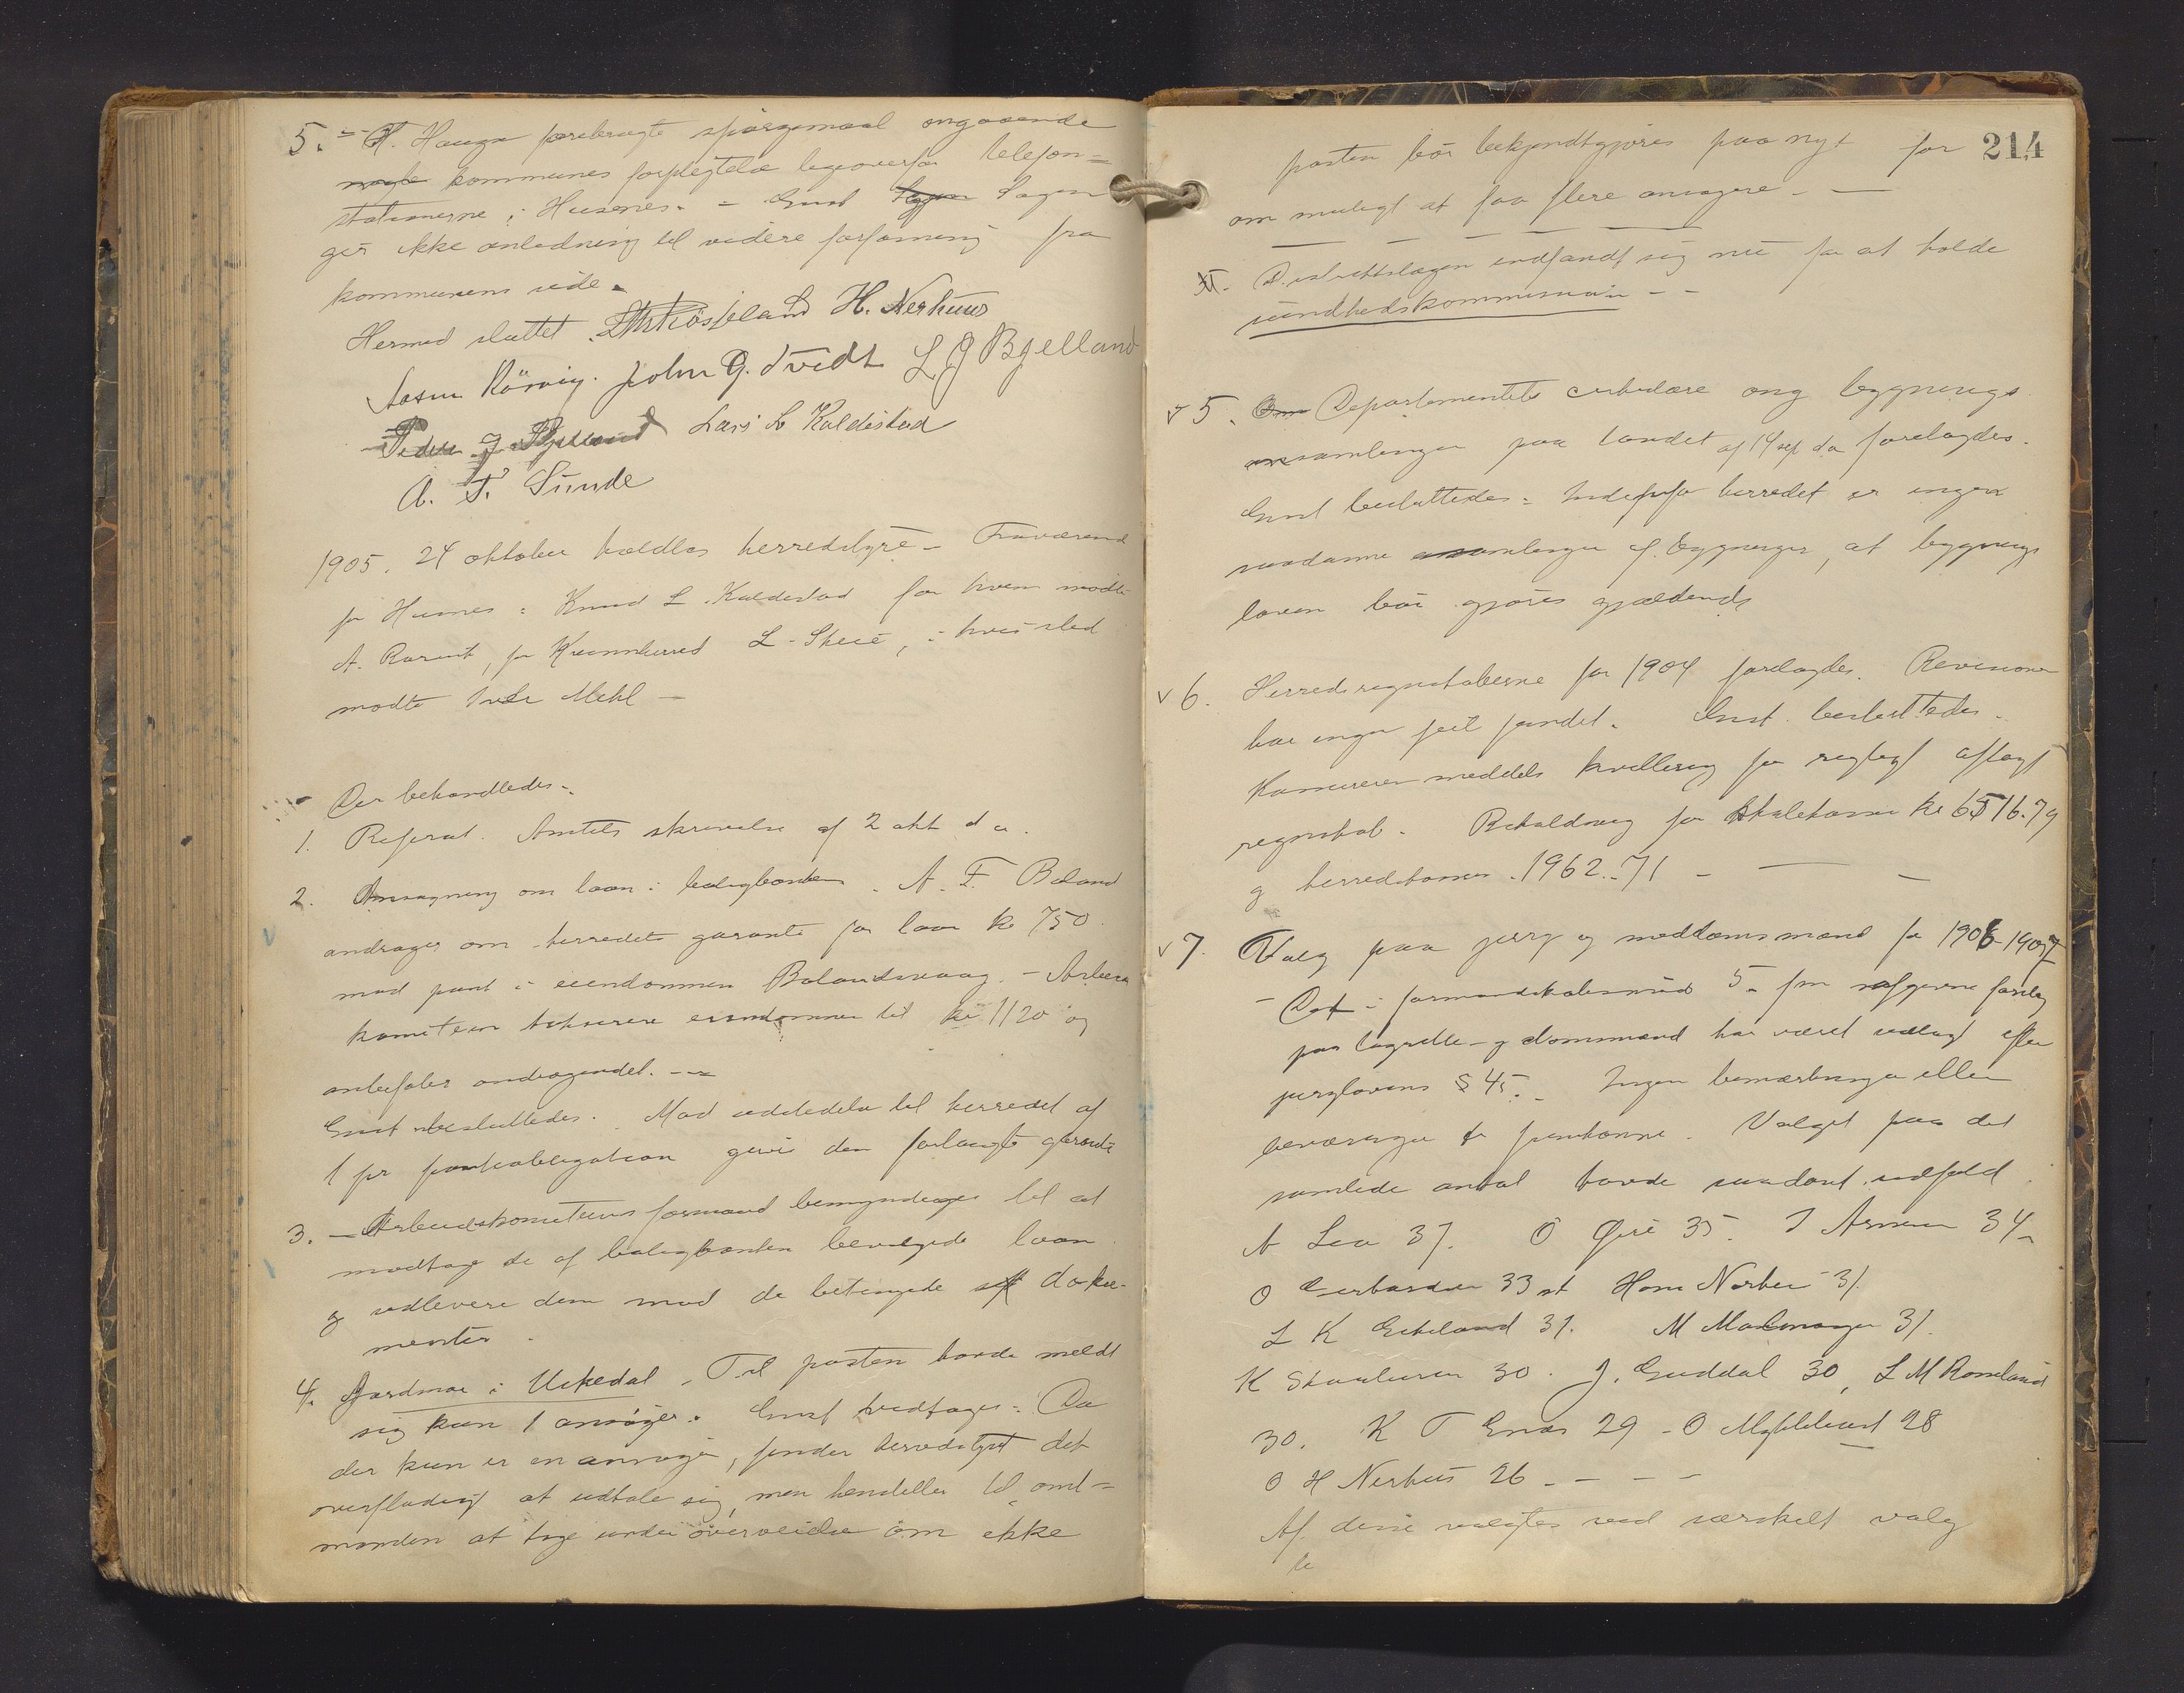 5. - A. Hauge forebragte spørgsmaal angaaende
kommunes forpligtelse ligeoverfor telefon=
stationerne i Husenes. - Enst Sagen
gir ikke anledning til videre forføining fra
kommunens side.
Hermed sluttet. H. Nerhuus
Aasm Rörvig. John G. Tvedt L G Bjelland
Peder Lars L Kaldestad
A. T. Sunde
1905. 24 oktober holdtes herredstyre - Fraværend
for Husnes: Knud L. Kaldestad for hvem mødte
A. Rørvik, for Kvinnherred L. Skeie, i hvis sted
mødte Iver Mehl -
Der behandledes:
1. Referat. Amtets skrivelse af 2 okt d a.
2. Ansøgning om laan i boligbanken. A. F. Boland
andrager om herredets garanti for laan kr 750.
mod pant i eiendommen Bolandsvaag. - Arbeids
komiteen takserer eiendommen til kr 1120 og
anbefaler andragendet. -
Enst besluttedes. Mod udstedelse til herredet af
1 pr pantobligation gives den forlangte garanti
3. - Arbeidskomiteens formand bemyndiges til at
modtage de af boligbanken bevilgede laan
og udlevere dem mod de betingede doku-
menter.
4. Jordmor i Uskedal. Til posten havde meldt
sig kun 1 ansøger. Enst vedtages: Da
der kun er en ansøger, finder herredstyret det
overflødigt at udtale sig, men henstiller til amt=
manden at tage under overveielse om ikke
214
posten bør bekjendtgjøres paa nyt for
om muligt at faa flere ansøgere. -
Distriktslægen indfandt sig nu for at holde
sundhedskommission - -
5. Departementets cirkulære ang bygnings
ansamlinger paa landet af 14 sep d a forelagdes.
Enst besluttedes: Indenfor herredet er ingen
saadanne ansamlinger af bygninger, at bygnings
loven bør gjøres gjældende
6. Herredsregnskaberne for 1904 forelagdes. Revisionen
har ingen feil fundet. Enst. besluttedes.
Kæmneren meddeles kvittering for rigtigt aflagt
regnskab. Beholdning for skolekassen kr 6516.79
og herredskassen 1962.71 -
7. Valg paa jury og meddomsmænd for 1906-1907
Det i formandskabsmøde 5. fm afgivne forslag
paa lagrette- og domsmænd har været udlagt efter
jurylovens § 45. Ingen bemærkninger eller
besværinger er fremkomne. Valget paa det
samlede antal havde saadant udfald.
A Lea 37. O Øire 35. I Arnesen 34
O Gerhardsen 33 st Hans Nerhus 31.
L K Eikeland 31. M Malmanger 31.
K Skaaluren 30. J. Guddal 30, L M Røneland
30. K T Enæs 29 - O Myklebust 28
O H Nerhus 26 - - -
Af disse valgtes ved særskilt valg